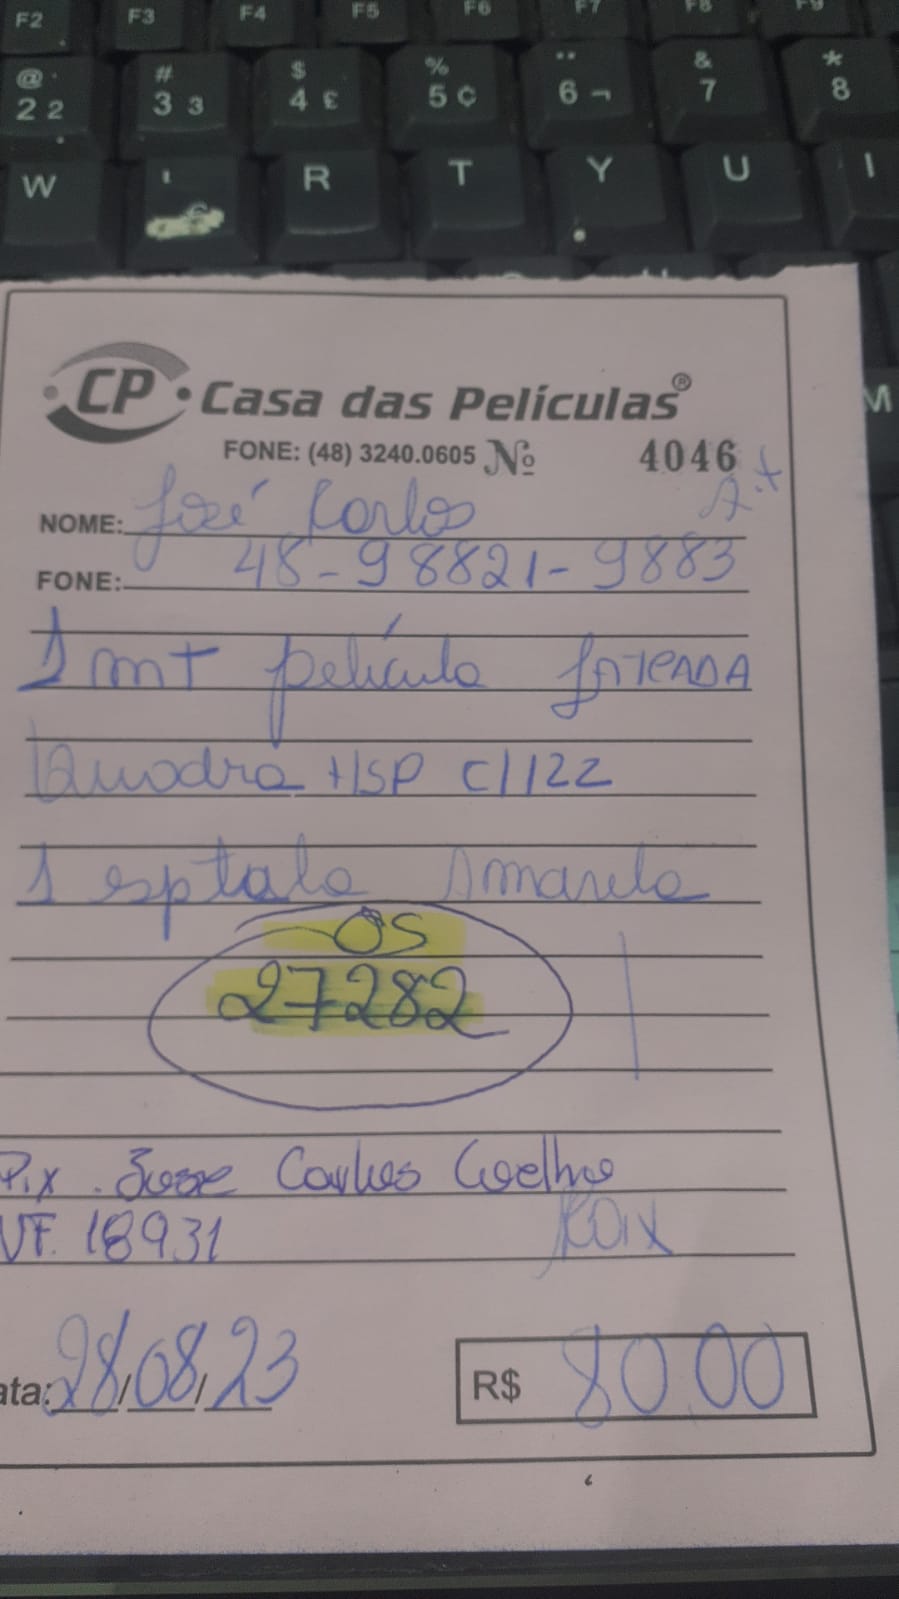 F2 F3 F4 F5 F6 F7 F8 F9
@ # $ % ¨ & *
2 2 3 3 4 £ 5 ¢ 6 ¬ 7 8
W R T Y U I
M
CP Casa das Películas®
FONE: (48) 3240.0605 Nº 4046
NOME: José Karlos
FONE: 48-98821-9883
1 mt película
Quadra HSP C/122
1 esptala Amarela
OS
27282
Pix. Jose Carlos Coelho
VF. 18931
ata: 28/08/23 R$ 80 00